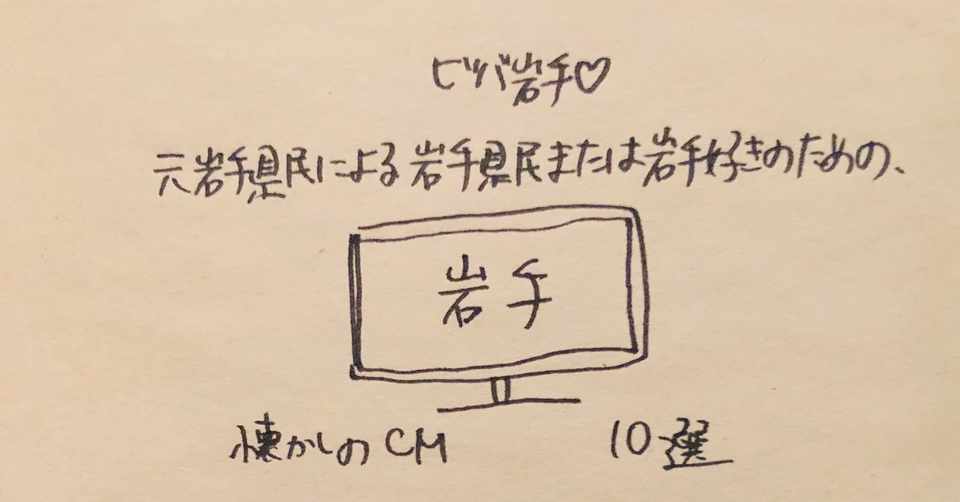 ビバ岩手♡
元岩手県民による岩手県民または岩手好きのための、
岩手
懐かしのCM 10選